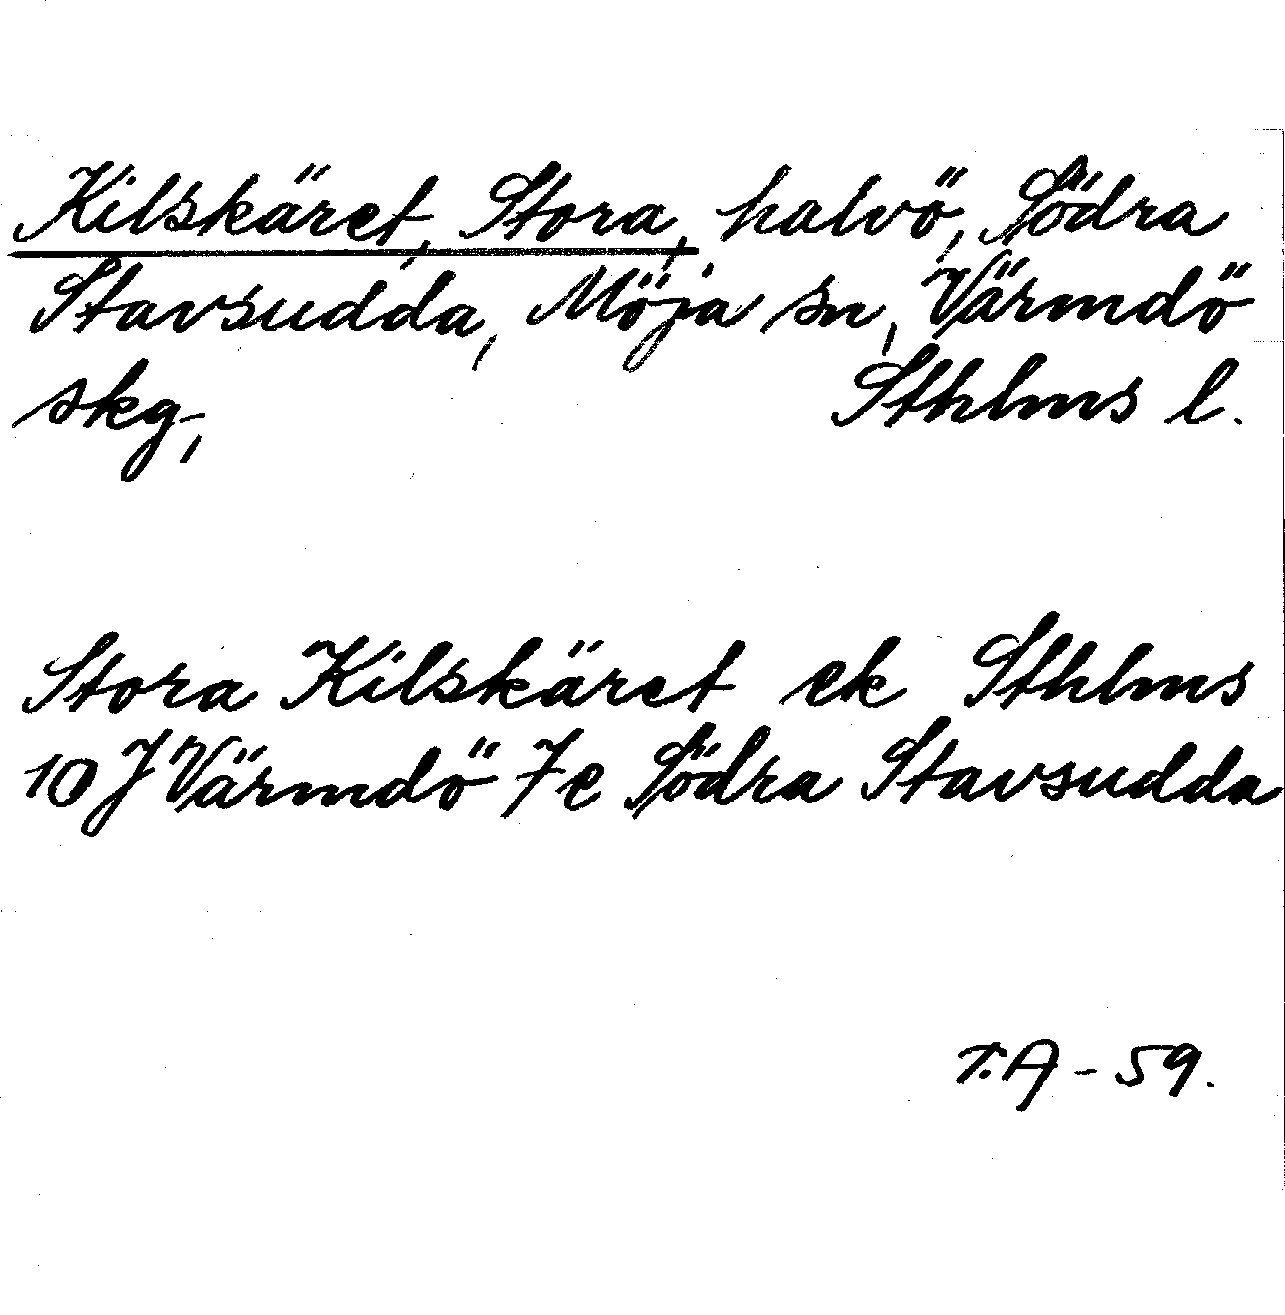 Kilskäret, Stora, halvö, Södra
Stavsudda, Möja sn, Värmdö
skg, Sthlms l.
Stora Kilskäret ek Sthlms
10 J Värmdö 7 e Södra Stavsudda
T.A - 59.